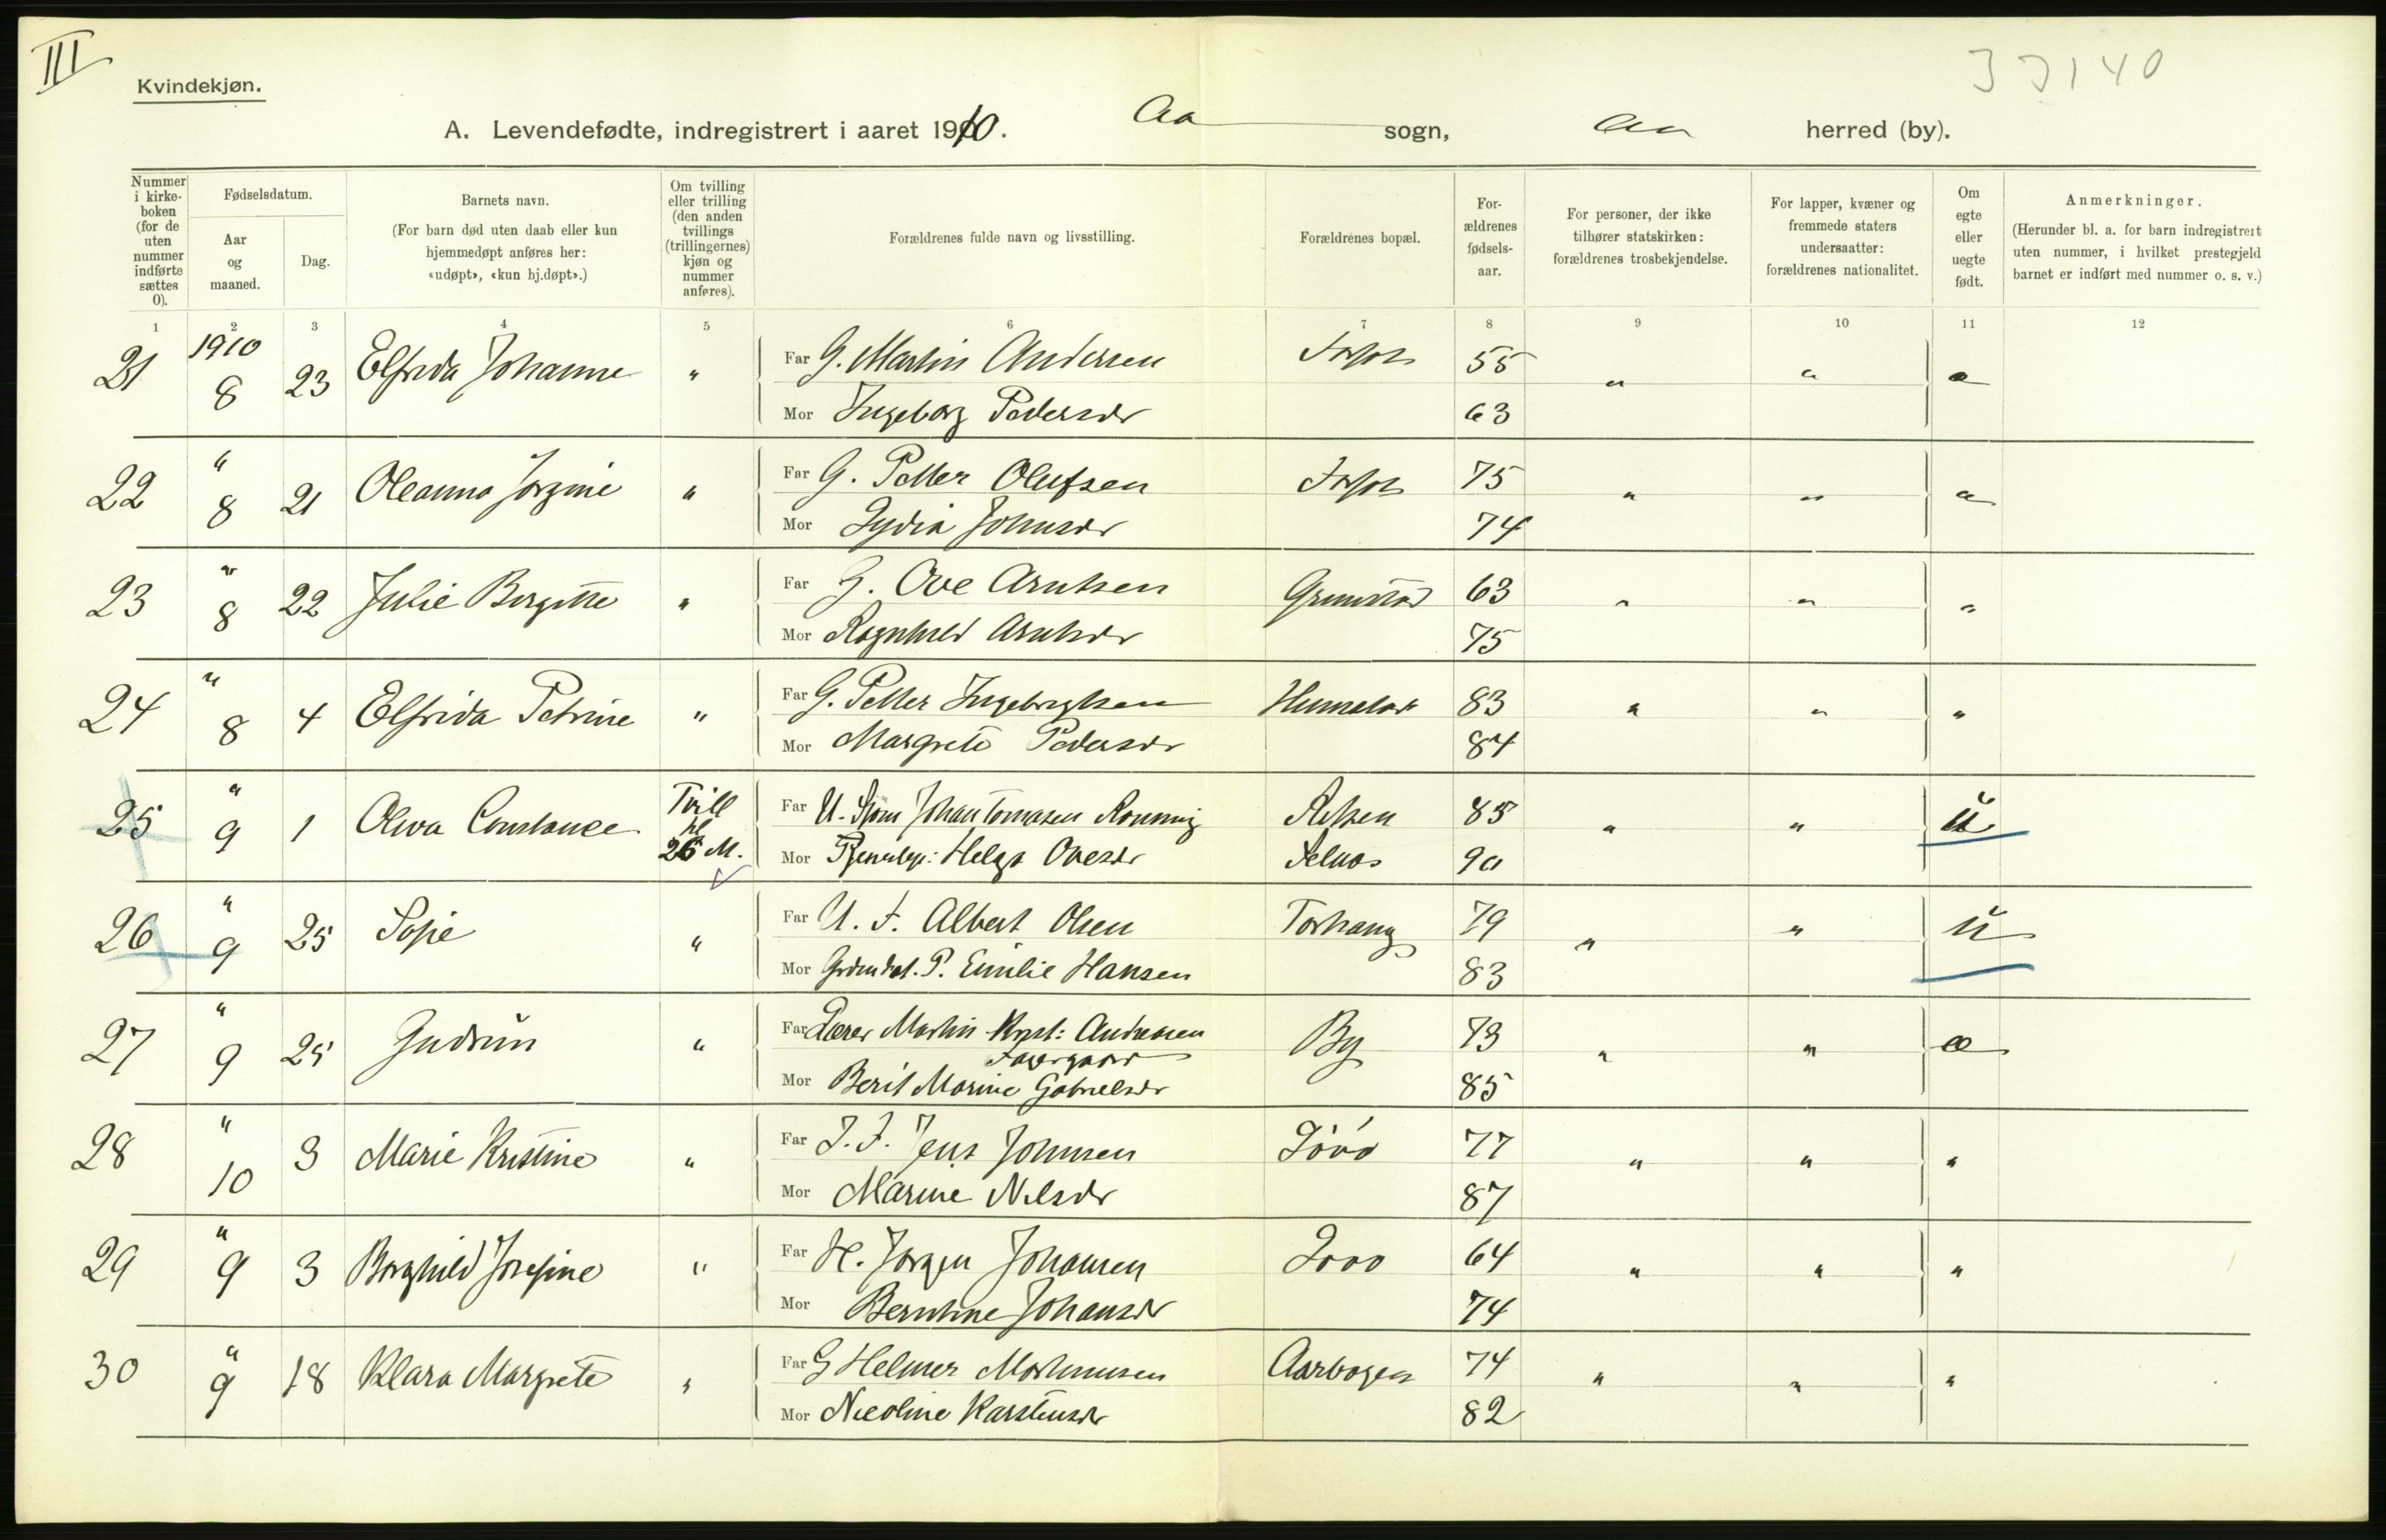 III
33140
Kvindekjøn.
A. Levendefødte, indregistrert i aaret 1910. Aa sogn, Aa herred (by).
Nummer i kirkeboken (for de uten nummer indførte sættes 0).
Fødselsdatum.
Aar og maaned.
Dag.
Barnets navn.
(For barn død uten daab eller kun hjemmedøpt anføres her: «udøpt», «kun hj.døpt».)
Om tvilling eller trilling (den anden tvillings (trillingernes) kjøn og nummer anføres).
Forældrenes fulde navn og livsstilling.
Forældrenes bopæl.
Forældrenes fødselsaar.
For personer, der ikke tilhører statskirken: forældrenes trosbekjendelse.
For lapper, kvæner og fremmede staters undersaatter: forældrenes nationalitet.
Om egte eller uegte født.
Anmerkninger.
(Herunder bl. a. for barn indregistrert uten nummer, i hvilket prestegjeld barnet er indført med nummer o. s. v.)
1 2 3 4 5 6 7 8 9 10 11 12
21 1910 8 23 Elfrida Johanne " Far G. Martin Andersen 55 " " æ
Mor Ingeborg Pedersdr 63
22 " 8 21 Oleanna Jorgine " Far G. Petter Olufsen 75 " " æ
Mor Lydia Johnsdr 74
23 " 8 22 Julie Birgitte " Far G. Ove Arntsen 63 " " "
Mor Ragnhild Arntsdr 75
24 " 8 4 Elfrida Petrine " Far G. Petter Ingebrigtsen 83 " " "
Mor Margrete Pedersdr 84
25 " 9 1 Olva Constance Tvill 26 M. Far U. Johan Tomasen Ronning 85 " " u
Mor Helga Ovesdr 90
26 " 9 25 Sofie " Far U. F. Albert Olsen 79 " " u
Mor P. Emilie Hansen 83
27 " 9 25 Gudrun " Far Lærer Martin Krist: Andreasen By 73 " " æ
Fagergaard
Mor Berit Marine Gabrielsdr 85
28 " 10 3 Marie Kristine " Far J. F. Jens Johnsen 77 " " "
Mor Marine Nilsdr 87
29 " 9 3 Borghild Josefine " Far H. Jørgen Johansen 64 " " "
Mor Berntine Johansdr 74
30 " 9 18 Klara Margrete " Far G Helmer Mortensen Aarbogen 74 " " "
Mor Nicoline Karstensdr 82